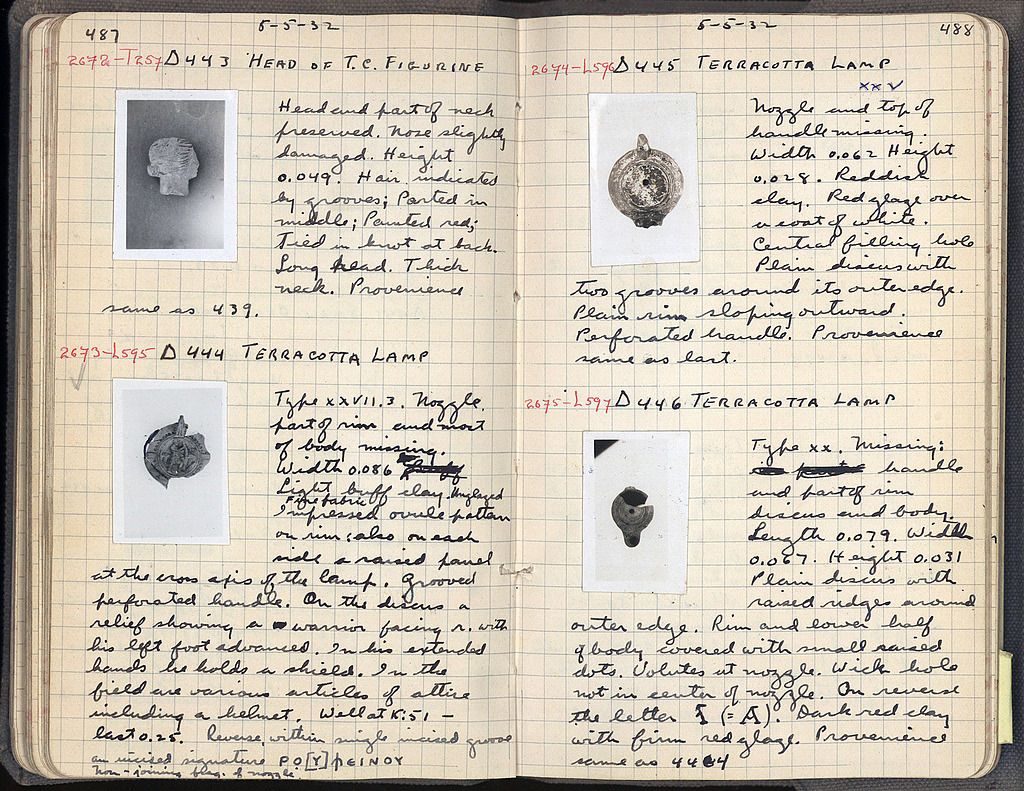 487
5-5-32
2672-T257 Δ 443 HEAD OF T.C. FIGURINE
Head and part of neck
preserved. Nose slightly
damaged. Height
0.049. Hair indicated
by grooves; Parted in
middle; Painted red;
Tied in knot at back.
Long head. Thick
neck. Provenience
same as 439.
2673-L595 Δ 444 TERRACOTTA LAMP
Type XXVII.3. Nozzle,
part of rim and most
of body missing.
Width 0.086
Light buff clay. Unglazed
Fine fabric
Impressed ovule pattern
on rim; also on each
side a raised panel
at the cross axis of the lamp. Grooved
perforated handle. On the discus a
relief showing a warrior facing r. with
his left foot advanced. In his extended
hands he holds a shield. In the
field are various articles of attire
including a helmet. Well at K:51 –
last 0.25. Reverse, within single incised groove
an incised signature
Non-joining frag. of nozzle.
5-5-32
488
2674-L596 Δ 445 TERRACOTTA LAMP
XX √
Nozzle and top of
handle missing.
Width 0.062 Height
0.028. Reddish
clay. Red glaze over
a coat of white.
Central filling hole
Plain discus with
two grooves around its outer edge.
Plain rim sloping outward.
Perforated handle. Provenience
same as last.
2675-L597 Δ 446 TERRACOTTA LAMP
Type XX. Missing:
handle
and part of rim
discus and body.
Length 0.079. Width
0.067. Height 0.031
Plain discus with
raised ridges around
outer edge. Rim and lower half
of body covered with small raised
dots. Volutes at nozzle. Wick hole
not in center of nozzle. On reverse
the letter (= A). Dark red clay
with firm red glaze. Provenience
same as 444